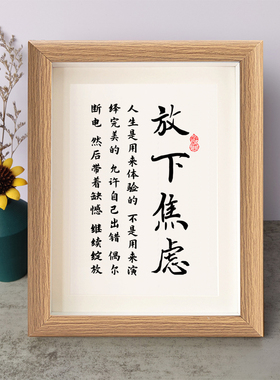 放下焦虑
人生是用来体验的 不是用来演
绎完美的 允许自己出错 偶尔
断电 然后带着缺憾 继续绽放